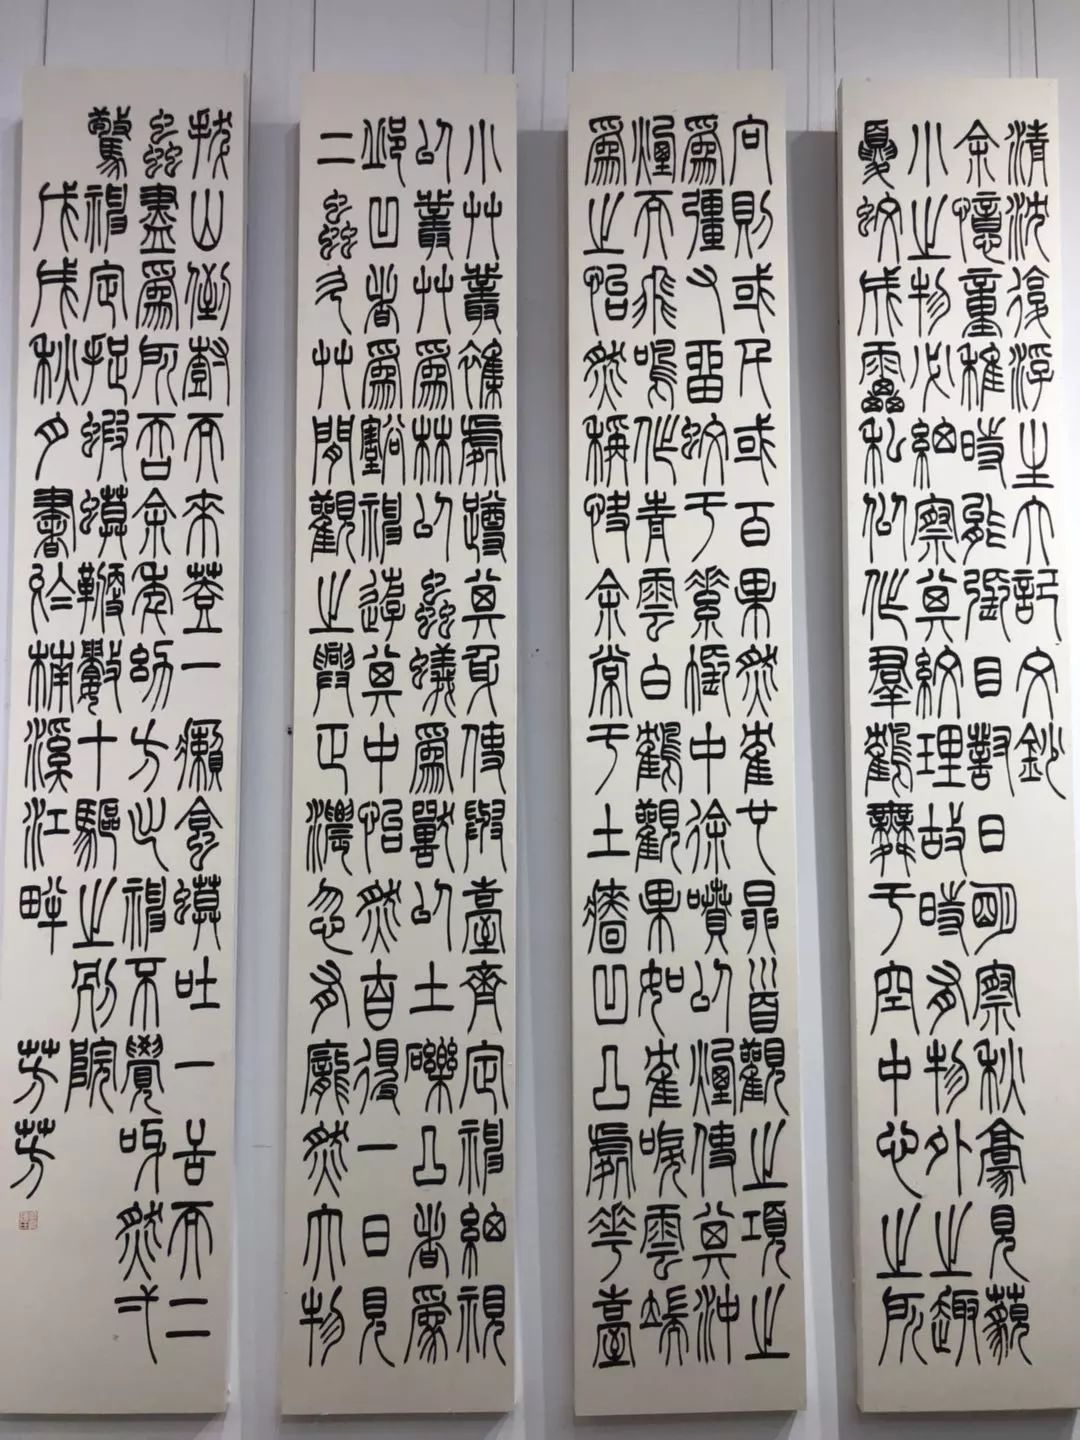 清沈復浮生六記文鈔
余憶童稚時能張目對日明察秋豪見藐
小之物必細察其紋理故時有物外之趣
夏蚊成靁私似作羣鶴舞于空中心之所
向則或千或百果然隺也昂首觀之項之
為彊又留蚊于素帳中徐噴以煙使其沖
煙而飛鳴作青雲白鶴觀果如隺唳雲端
為之怡然稱快余常于土牆凹凸處花臺
小艸叢雜處蹲其身使與臺齊定神細視
以叢艸為林以蟲蟻為獸以土礫凸者為
邱凹者為壑神遊其中怡然自得一日見
二蟲鬥艸間觀之興正濃忽有龐然大物
拔山倒樹而來蓋一癩蟆吐一舌而二
蟲盡為所吞余年幼方出神不覺呀然弌
驚神定捉蝦蟆鞭數十驅之別院
戊戌秋月書於楠溪江畔 芳芳